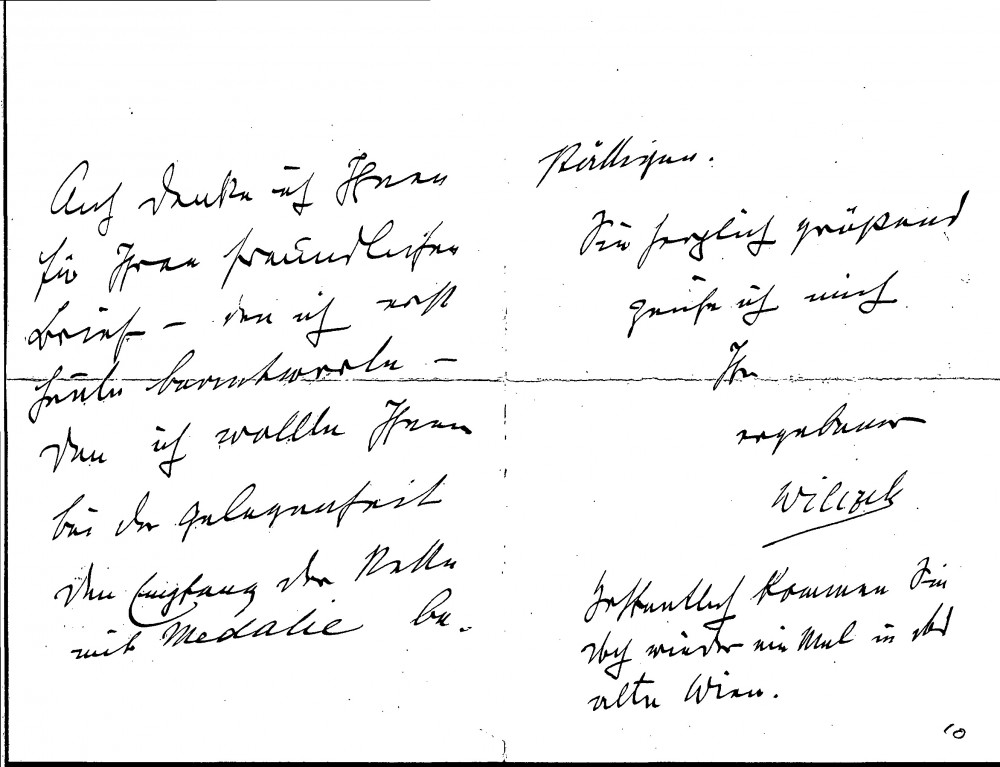 Auch danke ich Ihnen
für Ihren freundlichen
Brief – den ich erst
heute beantworte –
den ich wollte Ihnen
bei der Gelegenheit
den Empfang der Kette
mit Medalie be-
stätigen.
Sie herzlich grüßend
zeichne ich mich
Ihr
ergebener
Wilczek
Hoffentlich kommen Sie
doch wieder ein Mal in das
alte Wien.
10